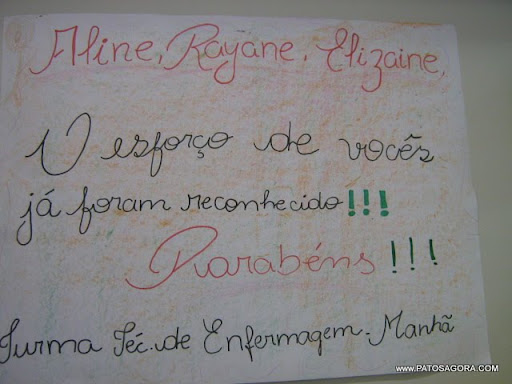 Aline, Rayane, Elizaine,
O esforço de vocês
já foram reconhecido!!!
Parabéns!!!
Turma Téc. de Enfermagem. Manhã
www.PATOSAGORA.com